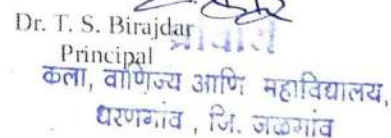 Dr. T. S. Birajdar
Principal
प्राचार्य
कला, वाणिज्य आणि महाविद्यालय,
धरणगांव , जि. जळगांव